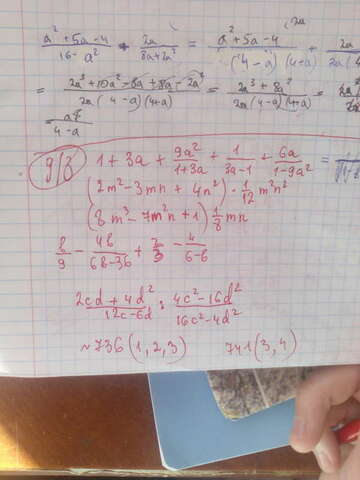 a² + 5a - 4 / 16 - a² + 2a / 8a + 2a² = a² + 5a - 4 / (4 - a)(4 + a) + 2a / 2a(
= 2a³ + 10a² - 8a + 8a - 2a² / 2a(4 - a)(4 + a) = 2a³ + 8a² / 2a(4 - a)(4 + a) =
= a / 4 - a
д/з 1 + 3a + 9a² / 1 + 3a + 1 / 3a - 1 + 6a / 1 - 9a² =
(2m² - 3mn + 4n²) · 1/12 m²n²
(8m³ - 7m²n + 1) 1/8 mn
b/9 - 4b / 6b - 36 + 2/3 - 4 / 6 - b
2cd + 4d² / 12c - 6d : 4c² - 16d² / 16c² - 4d²
~736 (1, 2, 3) 741 (3, 4)